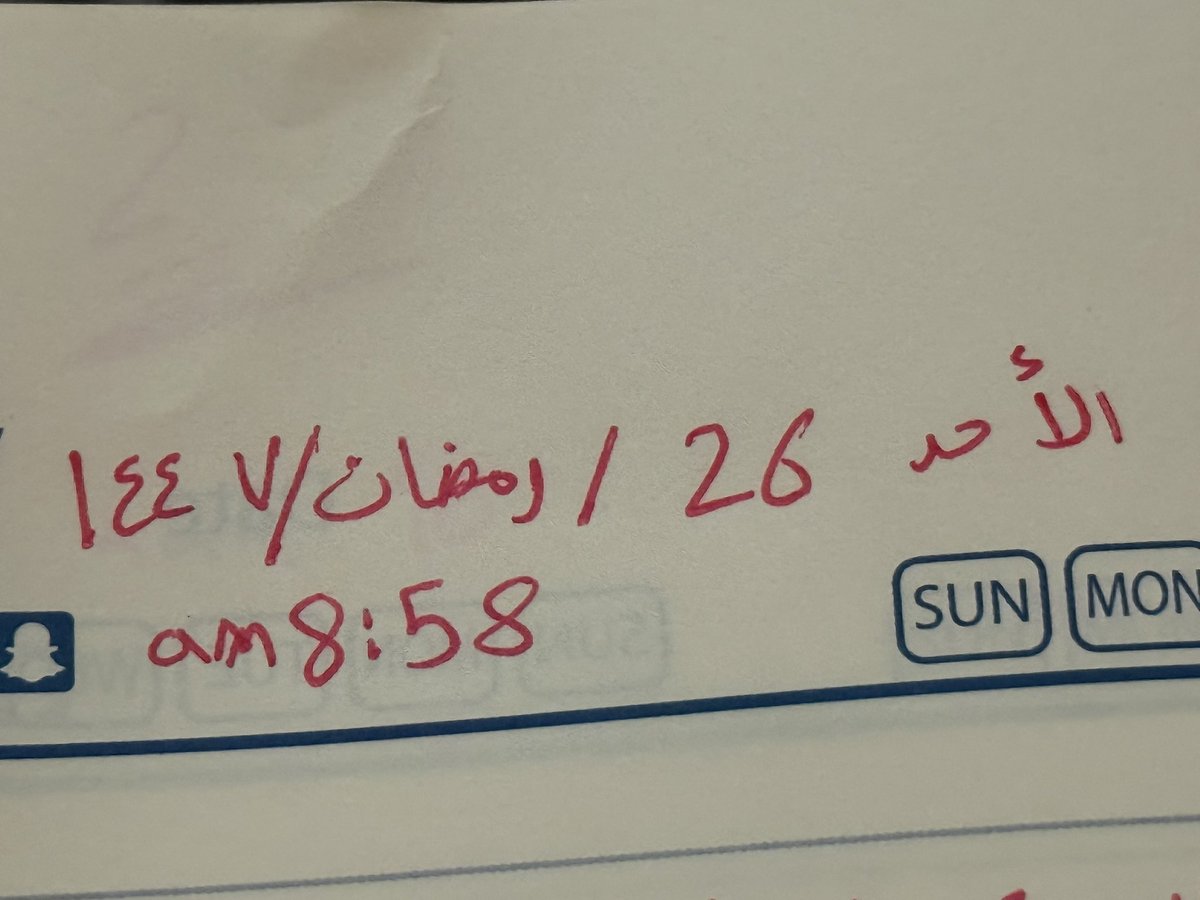 الأحد 26 / رمضان / ١٤٤٧
am 8:58
SUN MON